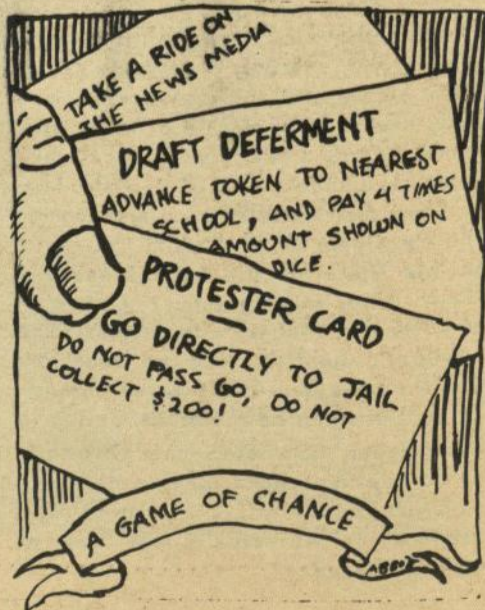 TAKE A RIDE ON
THE NEWS MEDIA
DRAFT DEFERMENT
ADVANCE TOKEN TO NEAREST
SCHOOL, AND PAY 4 TIMES
AMOUNT SHOWN ON
DICE.
PROTESTER CARD
GO DIRECTLY TO JAIL
DO NOT PASS GO, DO NOT
COLLECT $200!
A GAME OF CHANCE